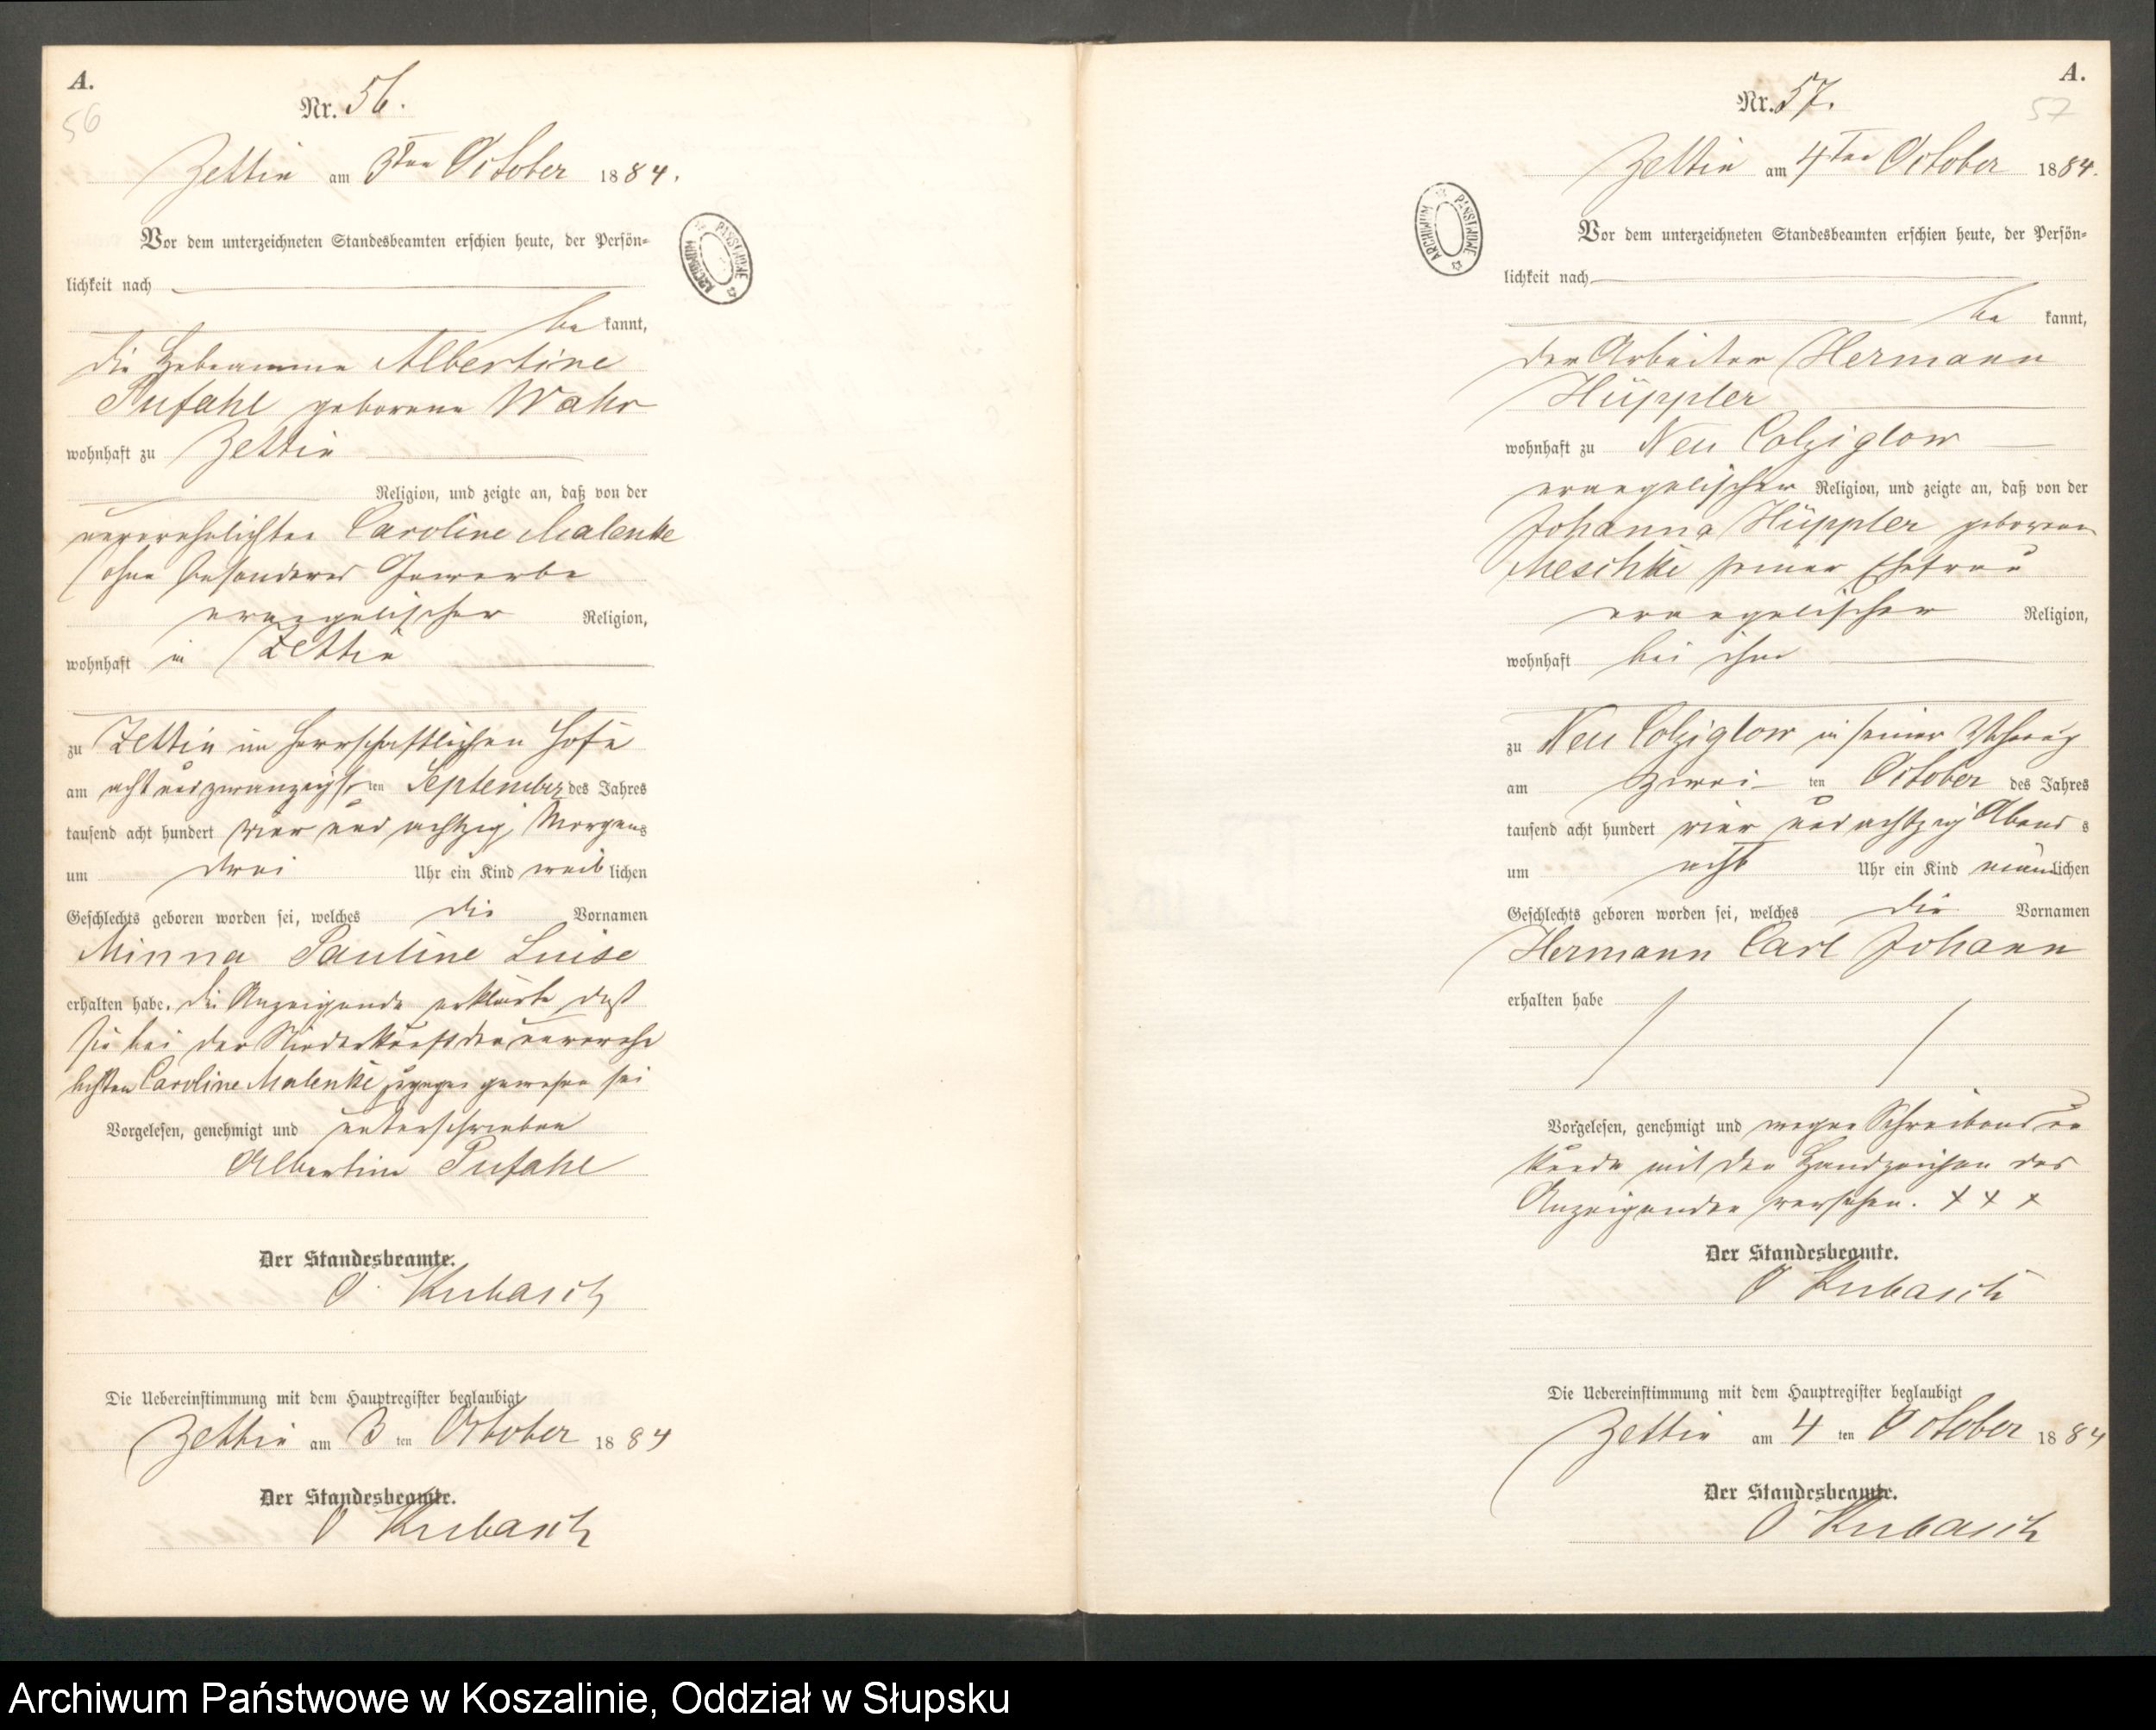 A.
56
Nr. 56.
Zettin am 3ten October 1884.
Vor dem unterzeichneten Standesbeamten erschien heute, der Persön=
lichkeit nach
be kannt,
die Hebeamme Albertine
Pufahl geborene Wahr
wohnhaft zu Zettin
Religion, und zeigte an, daß von der
unverehelichten Caroline Malenke
ohne besonderes Gewerbe
evangelischer Religion,
wohnhaft in Zettin
zu Zettin im herrschaftlichen Hofe
am acht und zwanzigsten ten September des Jahres
tausend acht hundert vier und achtzig Morgens
um drei Uhr ein Kind weib lichen
Geschlechts geboren worden sei, welches die Vornamen
Minna Pauline Luise
erhalten habe. die Anzeigende erklärte daß
sie bei der Niederkunft der unverehe
lichten Caroline Malenke zugegen gewesen sei
Vorgelesen, genehmigt und unterschrieben
Albertine Pufahl
Der Standesbeamte.
O. Kubasch
Die Uebereinstimmung mit dem Hauptregister beglaubigt
Zettin am 3 ten October 1884
Der Standesbeamte.
O Kubasch
ARCHIWUM PAŃSTWOWE
A.
57
Nr. 57.
Zettin am 4ten October 1884.
Vor dem unterzeichneten Standesbeamten erschien heute, der Persön=
lichkeit nach
be kannt,
der Arbeiter Hermann
Hüppler
wohnhaft zu Neu Colziglow
evangelischer Religion, und zeigte an, daß von der
Johanna Hüppler geborene
Meschke seiner Ehefrau
evangelischer Religion,
wohnhaft bei ihm
zu Neu Colziglow in seiner Wohnung
am zwei ten October des Jahres
tausend acht hundert vier und achtzig Abend s
um acht Uhr ein Kind männlichen
Geschlechts geboren worden sei, welches die Vornamen
Hermann Carl Johann
erhalten habe
Vorgelesen, genehmigt und wegen Schreibensun
kunde mit den Handzeichen des
Anzeigenden versehen. + + +
Der Standesbeamte.
O Kubasch
Die Uebereinstimmung mit dem Hauptregister beglaubigt
Zettin am 4 ten October 1884
Der Standesbeamte.
O Kubasch
ARCHIWUM PAŃSTWOWE
Archiwum Państwowe w Koszalinie, Oddział w Słupsku